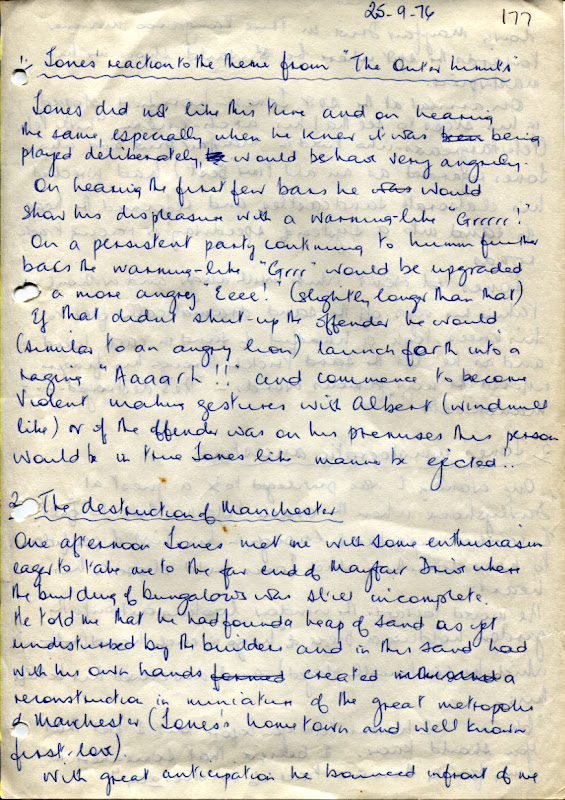 25-9-76
177
1:- Jones' reaction to the theme from "The Outer Limits"
Jones did not like this tune and on hearing
the same, especially when he knew it was been being
played deliberately, he would behave very angrily.
On hearing the first few bars he was would
show his displeasure with a warning-like "Grrrrr!"
On a persistent party continuing to humm further
bars the warning-like "Grrr" would be upgraded
a more angry "Eeee!" (slightly longer than that)
If that didn't shut-up the offender he would
(similar to an angry lion) launch forth into a
raging "Aaaarh!!" and commence to become
violent making gestures with Albert (windmill
like) or if the offender was on his premises this person
would be in true Jones like manner be ejected..
2. The destruction of Manchester
One afternoon Jones met me with some enthusiasm
eager to take me to the far end of Mayfair Drive where
the building of bungalows was still incomplete.
He told me that he had found a heap of sand as yet
undisturbed by the builders and in this sand had
with his own hands formed created in the sand a
reconstruction in miniature of the great metropolis
of Manchester (Jones's hometown and well known
first-love)
With great anticipation he bounced infront of me